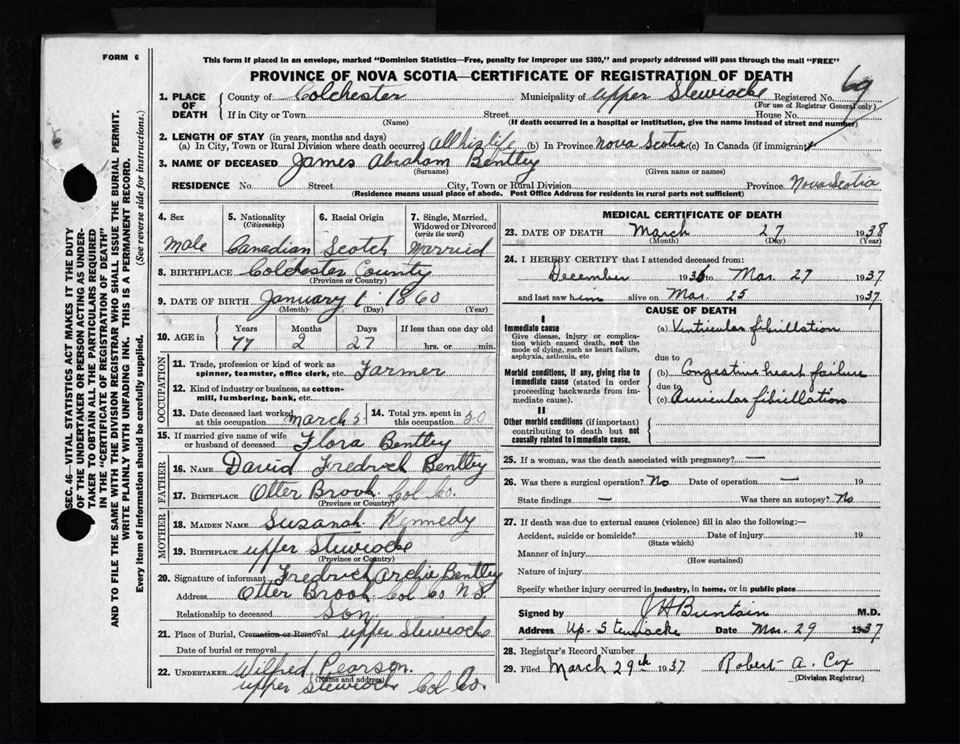 FORM 6
This form if placed in an envelope, marked "Dominion Statistics—Free, penalty for improper use $300," and properly addressed will pass through the mail "FREE"
PROVINCE OF NOVA SCOTIA—CERTIFICATE OF REGISTRATION OF DEATH
69
1. PLACE OF DEATH County of Colchester Municipality of Upper Stewiacke Registered No.
(For use of Registrar General only)
If in City or Town Street House No.
(Name) (If death occurred in a hospital or institution, give the name instead of street and number)
2. LENGTH OF STAY (in years, months and days)
(a) In City, Town or Rural Division where death occurred all his life (b) In Province Nova Scotia (c) In Canada (if immigrant)
3. NAME OF DECEASED James Abraham Bentley
(Surname) (Given name or names)
RESIDENCE No. Street City, Town or Rural Division Province Nova Scotia
(Residence means usual place of abode. Post Office Address for residents in rural parts not sufficient)
4. Sex 5. Nationality 6. Racial Origin 7. Single, Married, Widowed or Divorced
(Citizenship) (write the word)
Male Canadian Scotch Married
8. BIRTHPLACE Colchester County
(Province or Country)
9. DATE OF BIRTH January 1 1860
(Month) (Day) (Year)
10. AGE in Years Months Days If less than one day old
77 2 27 hrs. or min.
OCCUPATION
11. Trade, profession or kind of work as spinner, teamster, office clerk, etc. Farmer
12. Kind of industry or business, as cotton-mill, lumbering, bank, etc.
13. Date deceased last worked at this occupation March 14. Total yrs. spent in this occupation 50
15. If married give name of wife or husband of deceased Flora Bentley
FATHER
16. NAME David Fredrich Bentley
17. BIRTHPLACE Otter Brook Col Co.
(Province or Country)
MOTHER
18. MAIDEN NAME Susanah Kennedy
19. BIRTHPLACE upper Stewiacke
(Province or Country)
20. Signature of informant Fredrich Archie Bentley
Address Otter Brook Col Co N S
Relationship to deceased Son
21. Place of Burial, Cremation or Removal upper Stewiacke
Date of burial or removal
22. UNDERTAKER Wilfred Pearson.
(Name and address)
upper Stewiacke Col Co.
MEDICAL CERTIFICATE OF DEATH
23. DATE OF DEATH March 27 1938
(Month) (Day) (Year)
24. I HEREBY CERTIFY that I attended deceased from:
December 1936 to Mar. 27 1937
and last saw him alive on Mar. 25 1937
CAUSE OF DEATH
I
Immediate cause
Give disease, injury or complication which caused death, not the mode of dying, such as heart failure, asphyxia, asthenia, etc
(a) Ventricular fibrillation
due to
Morbid conditions, if any, giving rise to immediate cause (stated in order proceeding backwards from immediate cause).
(b) Congestive heart failure
due to
(c) Auricular fibrillation
II
Other morbid conditions (if important) contributing to death but not causally related to immediate cause.
25. If a woman, was the death associated with pregnancy? —
26. Was there a surgical operation? No Date of operation — 19
State findings — Was there an autopsy? No
27. If death was due to external causes (violence) fill in also the following:—
Accident, suicide or homicide? Date of injury 19
(State which)
Manner of injury
(How sustained)
Nature of injury
Specify whether injury occurred in industry, in home, or in public place
Signed by J H Buntain M.D.
Address Up. Stewiacke Date Mar. 29 1937
28. Registrar's Record Number
29. Filed March 29th 1937 Robert A. Cox
(Division Registrar)
SEC. 46—VITAL STATISTICS ACT MAKES IT THE DUTY
OF THE UNDERTAKER OR PERSON ACTING AS UNDER-
TAKER TO OBTAIN ALL THE PARTICULARS REQUIRED
IN THE "CERTIFICATE OF REGISTRATION OF DEATH"
AND TO FILE THE SAME WITH THE DIVISION REGISTRAR WHO SHALL ISSUE THE BURIAL PERMIT.
WRITE PLAINLY WITH UNFADING INK. THIS IS A PERMANENT RECORD.
Every item of Information should be carefully supplied. (See reverse side for instructions.)